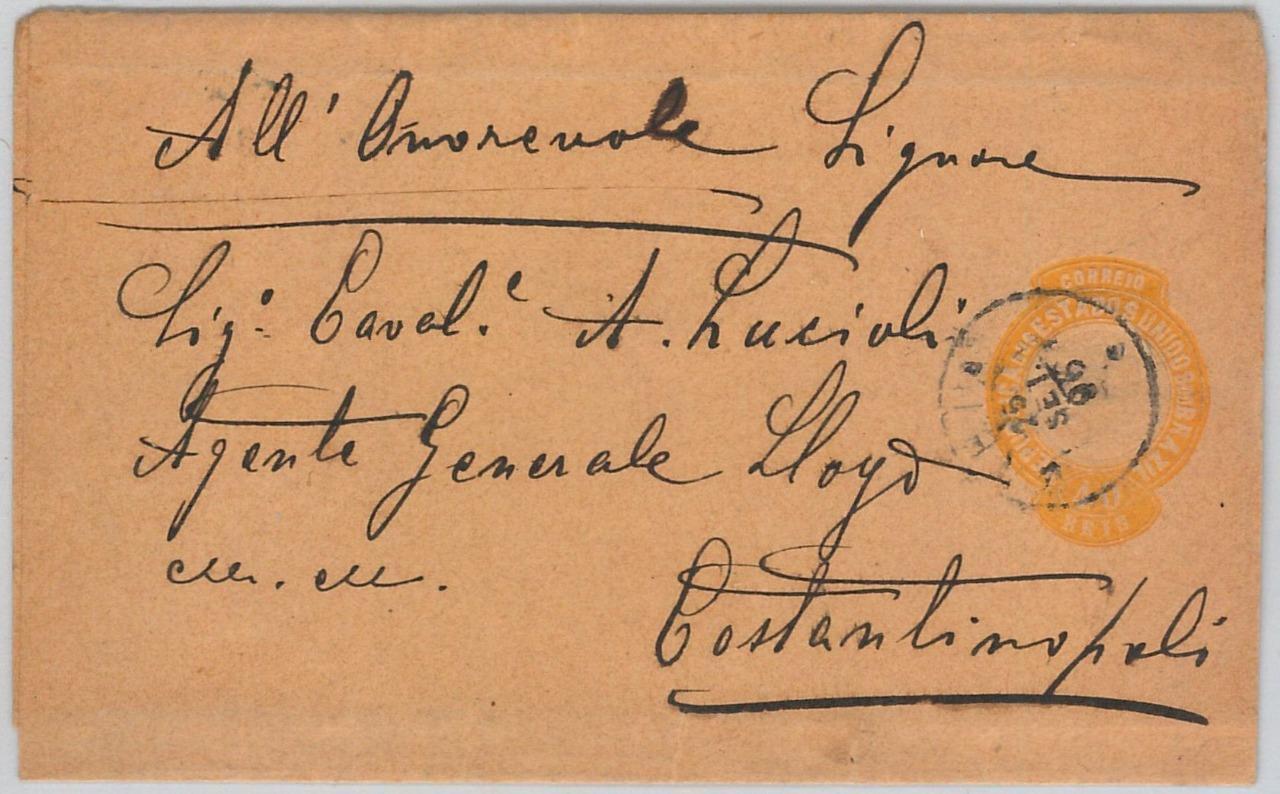 All' Onorevole Signore
Sig.r Caval.e A. Lucioli
Agente Generale Lloyd
Costantinopoli
CORREIO
ESTADOS UNIDOS BRAZIL
REIS
25
SET